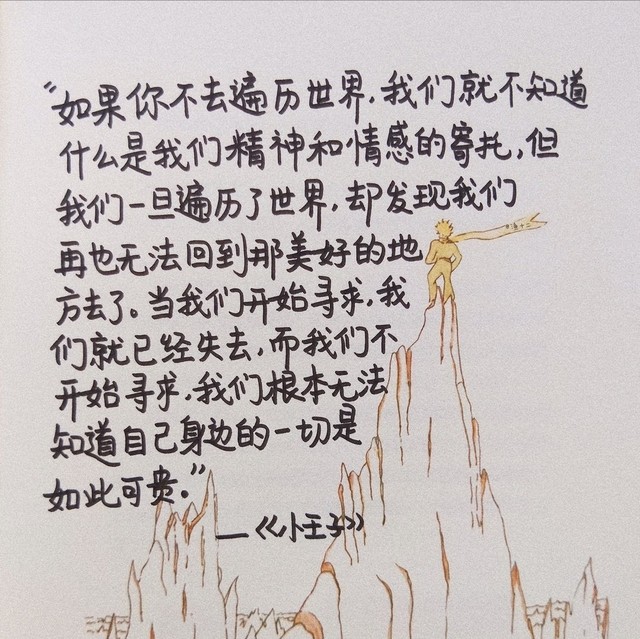 “如果你不去遍历世界，我们就不知道
什么是我们精神和情感的寄托，但
我们一旦遍历了世界，却发现我们
再也无法回到那美好的地
方去了。当我们开始寻求，我
们就已经失去，而我们不
开始寻求，我们根本无法
知道自己身边的一切是
如此可贵。”
—《小王子》